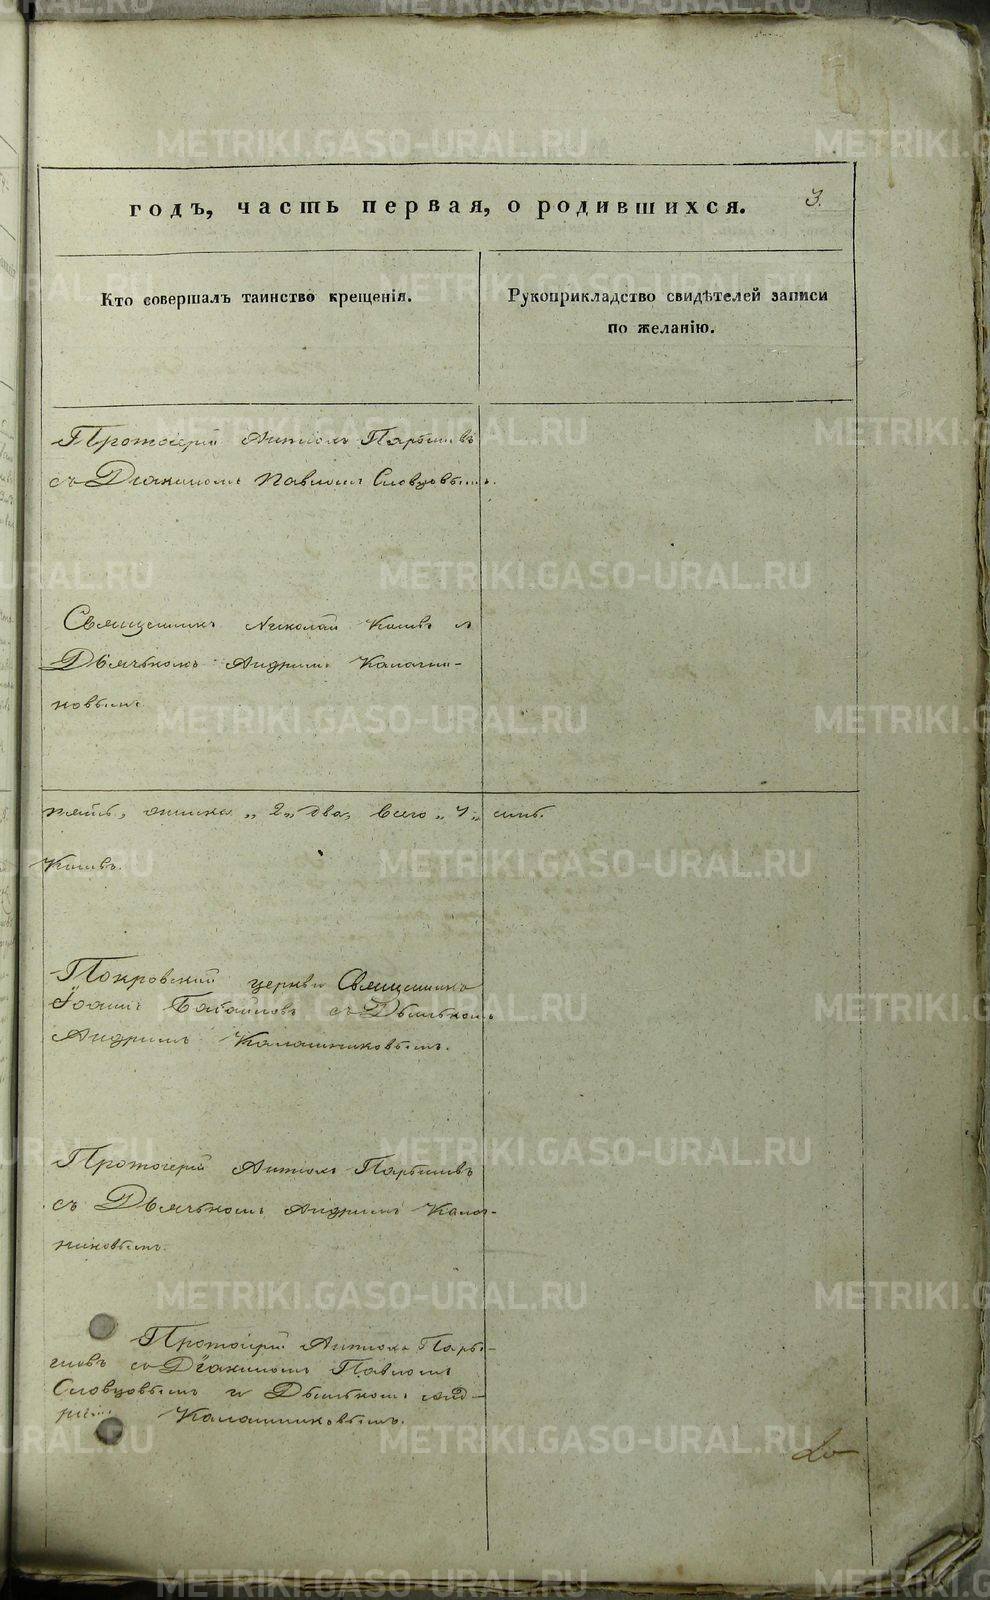 METRIKI.GASO-URAL.RU
годъ, часть первая, о родившихся.
3.
Кто совершалъ таинство крещенія.
Рукоприкладство свидѣтелей записи
по желанію.
Протоіерей Антоній
съ Діакономъ Павломъ Словцовымъ.
Священникъ Николай и
Дьячькомъ Андреемъ Калашни-
ковымъ.
„ 2 „ два, всего „
Покровской церкви Священникъ
Іоаннъ Бабайловъ съ Дьячькомъ
Андреемъ Калашниковымъ.
Протоіерей
съ Дьячькомъ Андреемъ Калаш-
никовымъ.
Протоіерей
съ Діакономъ Павломъ
Словцовымъ и Дьячькомъ Анд-
реемъ Калашниковымъ.